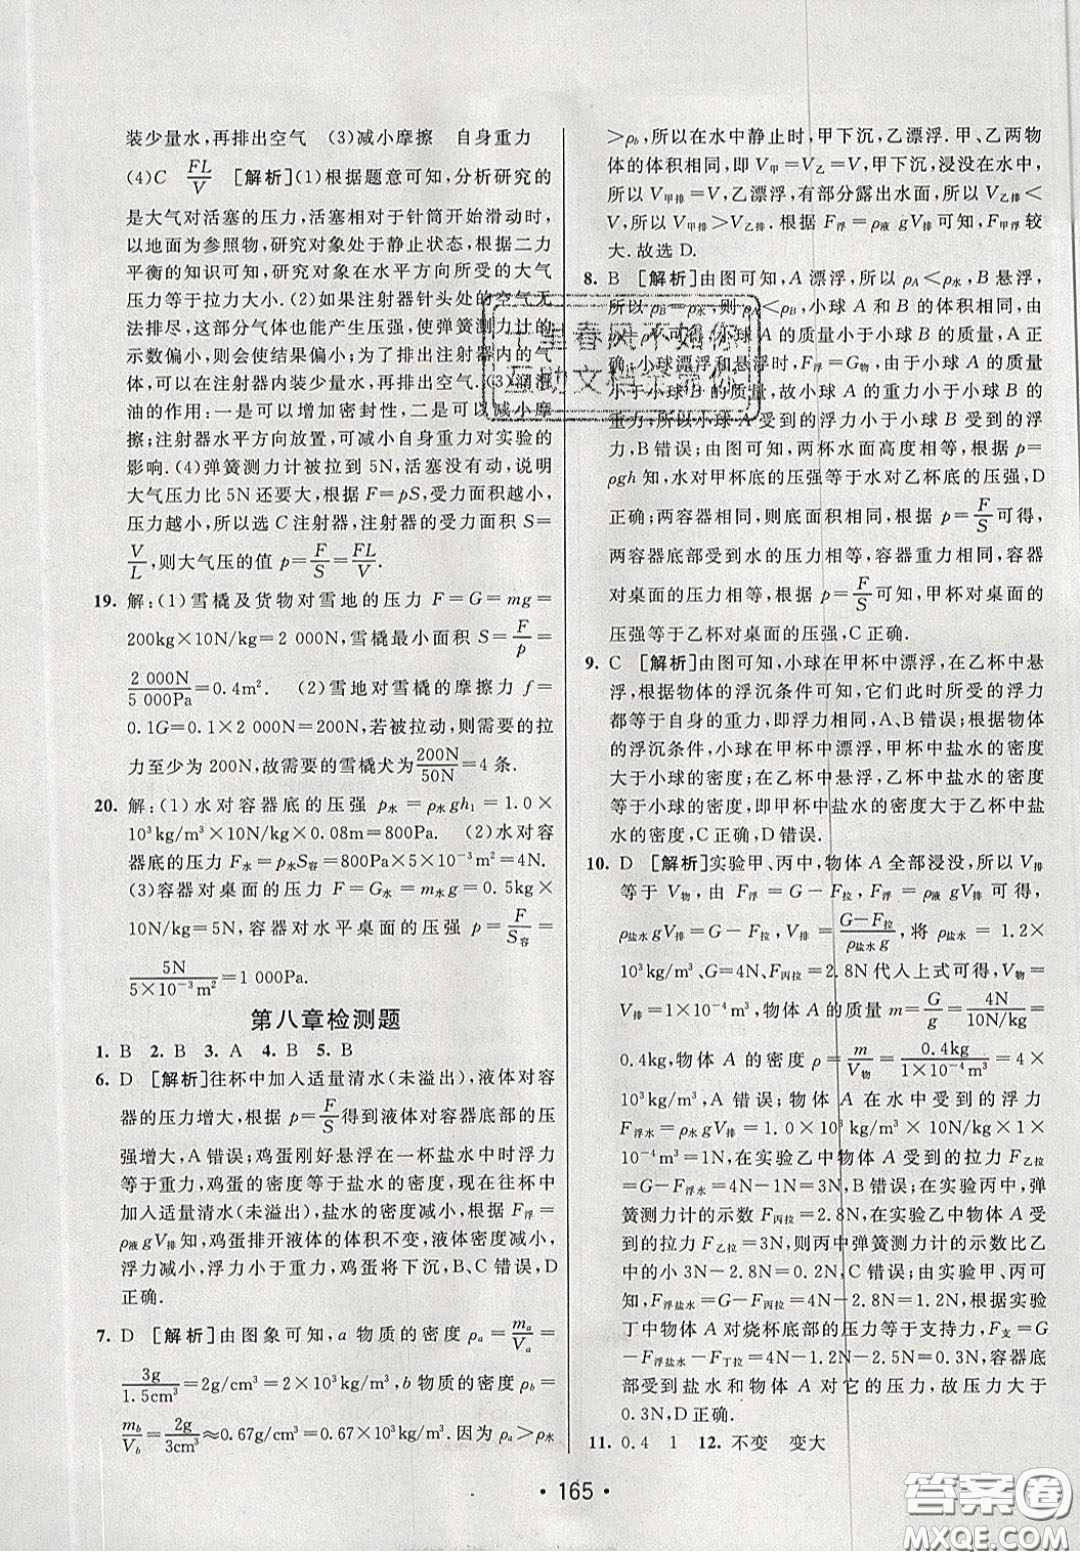 装少量水,再排出空气 (3)减小摩擦 自身重力
(4)C FL/V [解析](1)根据题意可知,分析研究的
是大气对活塞的压力,活塞相对于针筒开始滑动时,
以地面为参照物,研究对象处于静止状态,根据二力
平衡的知识可知,研究对象在水平方向所受的大气
压力等于拉力大小.(2)如果注射器针头处的空气无
法排尽,这部分气体也能产生压强,使弹簧测力计的
示数偏小,则会使结果偏小;为了排尽注射器内的气
体,可在注射器内装少量水,再排出空气.(3)润滑
油的作用:一是可以增加密封性,二是可以减小摩
擦;注射器水平方向放置,可减小自身重力对实验的
影响.(4)弹簧测力计被拉到5N,活塞没有动,说明
大气压力比5N还要大,根据F=pS,受力面积越小,
压力越小,所以选C注射器,注射器的受力面积S=
V/L,则大气压的值p=F/S=FL/V.
19. 解:(1)雪橇及货物对雪地的压力F=G=mg=
200kg×10N/kg=2 000N,雪橇最小面积S=F/p=
2 000N/5 000Pa=0.4m². (2)雪地对雪橇的摩擦力f=
0.1G=0.1×2 000N=200N,若被拉动,最小的拉
力至少为200N,故需要的雪橇犬为200N/50N=4条.
20. 解:(1)水对容器底的压强p水=ρ水gh₁=1.0×
10³kg/m³×10N/kg×0.08m=800Pa. (2)水对容
器底的压力F水=p水S容=800Pa×5×10⁻³m²=4N.
(3)容器对桌面的压力F=G水=m水g=0.5kg×
10N/kg=5N,容器对水平桌面的压强p=F/S容=
5N/5×10⁻³m²=1 000Pa.
第八章检测题
1. B 2. B 3. A 4. B 5. B
6. D [解析]往杯中加入适量清水(未溢出),液体对容
器的压力增大,根据p=F/S得到液体对容器底部的压
强增大,A错误;鸡蛋刚好悬浮在一杯盐水中时浮力
等于重力,鸡蛋的密度等于盐水的密度,现在往杯中
加入适量清水(未溢出),盐水的密度减小,根据F浮=
ρ液gV排知,鸡蛋排开液体的体积不变,液体密度减小,
浮力减小,浮力小于重力,鸡蛋将下沉,B、C错误,D
正确.
7. D [解析]由图象可知,a物质的密度ρa=ma/Va=
3g/1.5cm³=2g/cm³=2×10³kg/m³,b物质的密度ρb=
mb/Vb=2g/3cm³≈0.67g/cm³=0.67×10³kg/m³.因为ρa>ρ水
>ρb,所以在水中静止时,甲下沉,乙漂浮.甲、乙两物
体的体积相同,即V甲=V乙=V,甲下沉,浸没在水中,
所以V甲排=V,乙漂浮,有部分露出水面,所以V乙排<
V,所以V甲排>V乙排.根据F浮=ρ液gV排可知,F甲浮较
大.故选D.
8. B [解析]由图可知,A漂浮,所以ρA<ρ水,B悬浮,
所以ρB=ρ水,则ρA<ρB,小球A和B的体积相同,由
m=ρV可知,小球A的质量小于小球B的质量,A正
确;小球漂浮和悬浮时,F浮=G物,由于小球A的质量
小于小球B的质量,故小球A的重力小于小球B的重
力,所以小球A受到的浮力小于小球B受到的浮
力,B错误;由图可知,两杯水面高度相等,根据p=
ρgh知,水对甲杯底的压强等于水对乙杯底的压强,D
正确;两容器相同,则底面积相同,根据p=F/S可得,
两容器底部受到水的压力相等,容器重力相同,容器
对桌面的压力相等,根据p=F/S可知,甲杯对桌面的
压强等于乙杯对桌面的压强,C正确.
9. C [解析]由图可知,小球在甲杯中漂浮,在乙杯中悬
浮,根据物体的浮沉条件可知,它们此时所受的浮力
都等于自身的重力,即浮力相同,A、B错误;根据物体
的浮沉条件,小球在甲杯中漂浮,甲杯中盐水的密度
大于小球的密度;在乙杯中悬浮,乙杯中盐水的密度
等于小球的密度,即甲杯中盐水的密度大于乙杯中盐
水的密度,C正确,D错误.
10. D [解析]实验甲、丙中,物体A全部浸没,所以V排
等于V物,由F浮=G-F拉,F浮=ρ液gV排可得,
ρ盐水gV排=G-F拉,V排=G-F拉/ρ盐水g,将ρ盐水=1.2×
10³kg/m³、G=4N、F丙拉=2.8N代入上式可得,V物
=V排=1×10⁻⁴m³,物体A的质量m=G/g=4N/10N/kg=
0.4kg,物体A的密度ρ=m/V物=0.4kg/1×10⁻⁴m³=4×
10³kg/m³,A错误;物体A在水中受到的浮力
F浮水=ρ水gV排=1.0×10³kg/m³×10N/kg×1×
10⁻⁴m³=1N,在实验乙中物体A受到的拉力F乙拉
=G-F浮水=4N-1N=3N,B错误;在实验丙中,弹
簧测力计的示数F丙拉=2.8N,在实验乙中物体A受
到的拉力F乙拉=3N,则丙中弹簧测力计的示数比乙
中的小3N-2.8N=0.2N,C错误;由实验甲、丙可
知,F浮盐水=G-F丙拉=4N-2.8N=1.2N,根据实验
丁中物体A对烧杯底部的压力等于支持力,F支=G
-F浮盐水-F丁拉=4N-1.2N-2.5N=0.3N,容器底
部受到盐水和物体A对它的压力,故压力大于
0.3N,D正确.
11. 0.4 1 12. 不变 变大
· 165 ·
答案圈
MXQE.COM